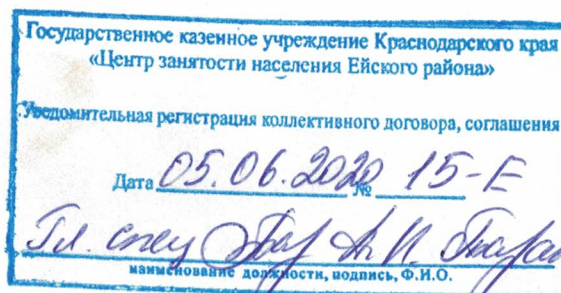 Государственное казенное учреждение Краснодарского края
«Центр занятости населения Ейского района»
Уведомительная регистрация коллективного договора, соглашения
Дата 05.06.2020 № 15-Е
Гл. спец
наименование должности, подпись, Ф.И.О.